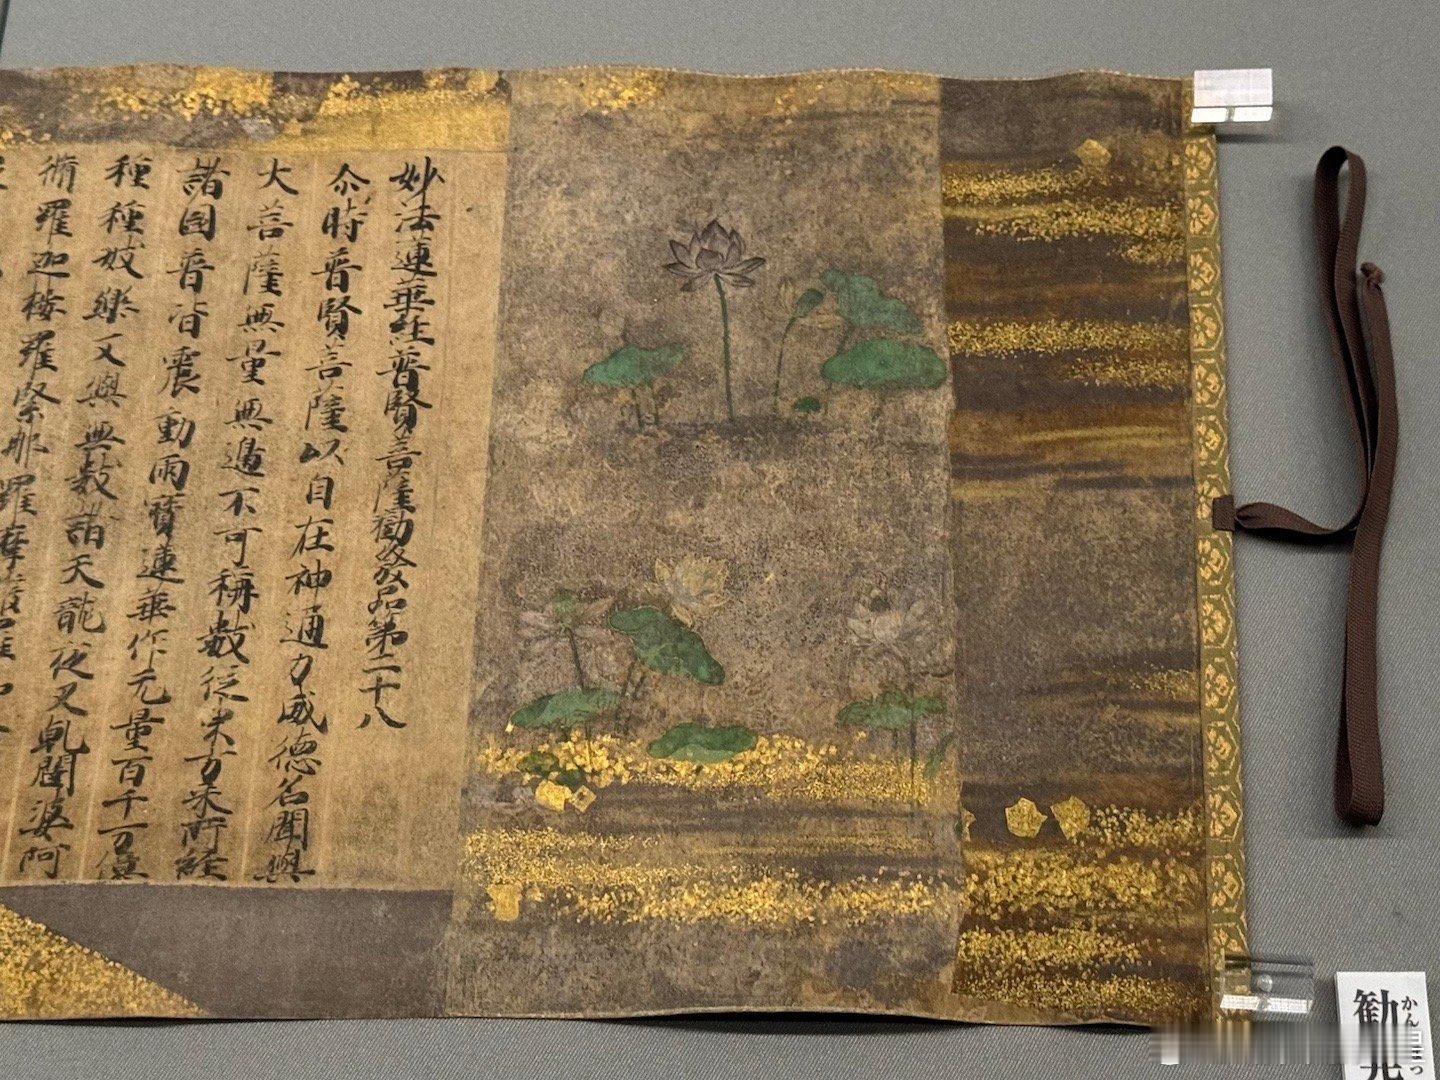 妙法蓮華経普賢菩薩勸發品第二十八
尒時普賢菩薩以自在神通力威德名聞與
大菩薩無量無邊不可稱數從東方来所經
諸国普皆震動雨寶蓮華作无量百千万億
種種妓樂又與無數諸天龍夜叉乹闥婆阿
脩羅迦樓羅緊那羅摩
勧
かん